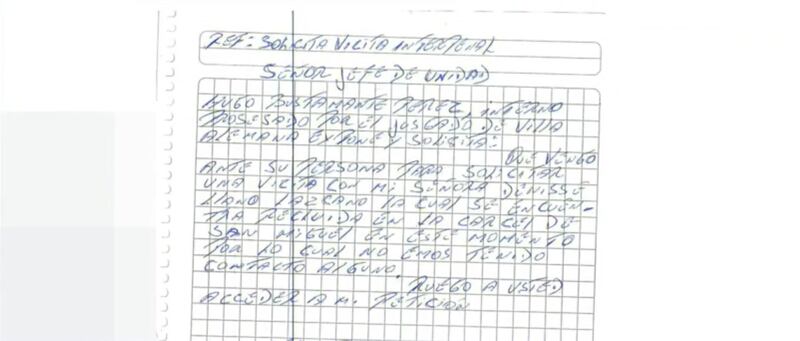 REF: SOLICITA VICITA INTERPENAL
SEÑOR JEFE DE UNIDAD
HUGO BUSTAMANTE PEREZ, INTERNO
PROSESADO POR EL JUSGADO DE VILLA
ALEMANA EXPONE Y SOLISITA:
QUE VENGO
ANTE SU PERSONA PARA SOLICITAR
UNA VICITA CON MI SEÑORA DENISSE
LLANO LAZCANO LA CUAL SE ENCUEN-
TRA RECLUIDA EN LA CARCEL DE
SAN MIGUEL EN ESTE MOMENTO
POR LO CUAL NO EMOS TENIDO
CONTACTO ALGUNO.
RUEGO A USTED
ACCEDER A MI PETICION